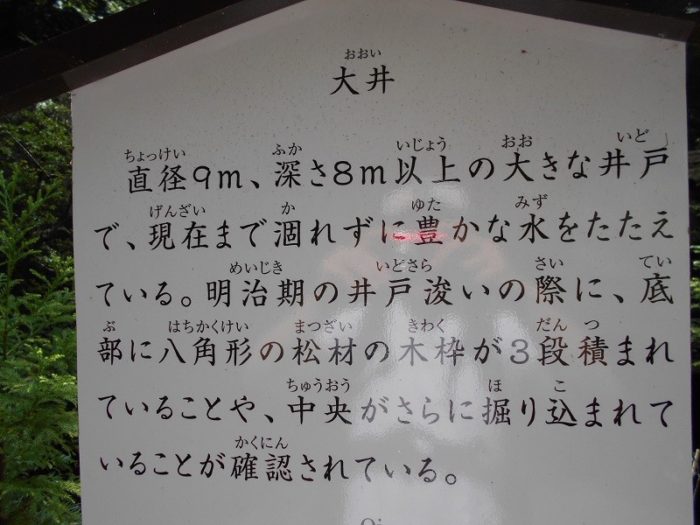 おおい
大井
ちょっけい ふか いじょう おお いど
直径9m、深さ8m以上の大きな井戸
げんざい か ゆた みず
で、現在まで涸れずに豊かな水をたたえ
めいじき いどさら さい てい
ている。明治期の井戸浚いの際に、底
ぶ はちかくけい まつざい きわく だん つ
部に八角形の松材の木枠が3段積まれ
ちゅうおう ほ こ
ていることや、中央がさらに掘り込まれて
かくにん
いることが確認されている。